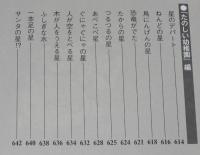 ●『たのしい幼稚園』編
星のデパート 614
ねんどの星 616
鳥にんげんの星 618
恐竜がでた 621
たからの星 624
つるつるの星 625
あべこべの星 628
ぐにゃぐにゃの星 632
人が空をとべる星 634
木が人をうえる星 636
ふしぎな水 638
一本足の星 640
サンタの星!? 642